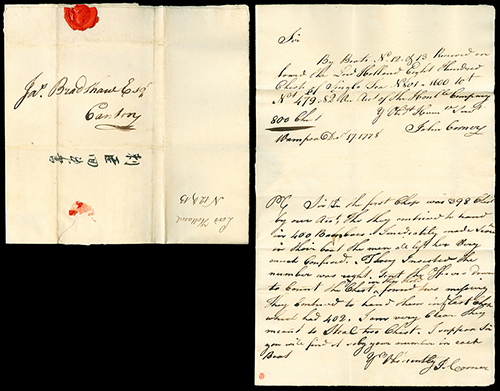 Jas. Bradshaw Esqr
Canton
Lord Holland
N 12 & 13
Sir
By Boats No. 12 & 13 Received on
board the Lord Holland Eight Hundred
Chests of Singlo Tea No 801 - 1600
No 479.82 on Acct of the Honble Company
800 Chest
Your Obedt Humle Servt
John Corner
Wampoa Decr 17. 1778
PS Sir In the first Chop was 398 Chest
by our Acct, Tho they contrived to hand
in 400 Bamboos. I Immediately made
in their boat the men all left her Very
much Confused. They Insisted the
number was right. Sent the Officers Down
to Count the Chest in they hold, found two missing
They Contrived to hand them in last Chop
which had 402. I am very Clear they
meant to Steal two Chest. I suppose Sir
you will find it only your number in each
Boat
Yr Obediently J. Corner